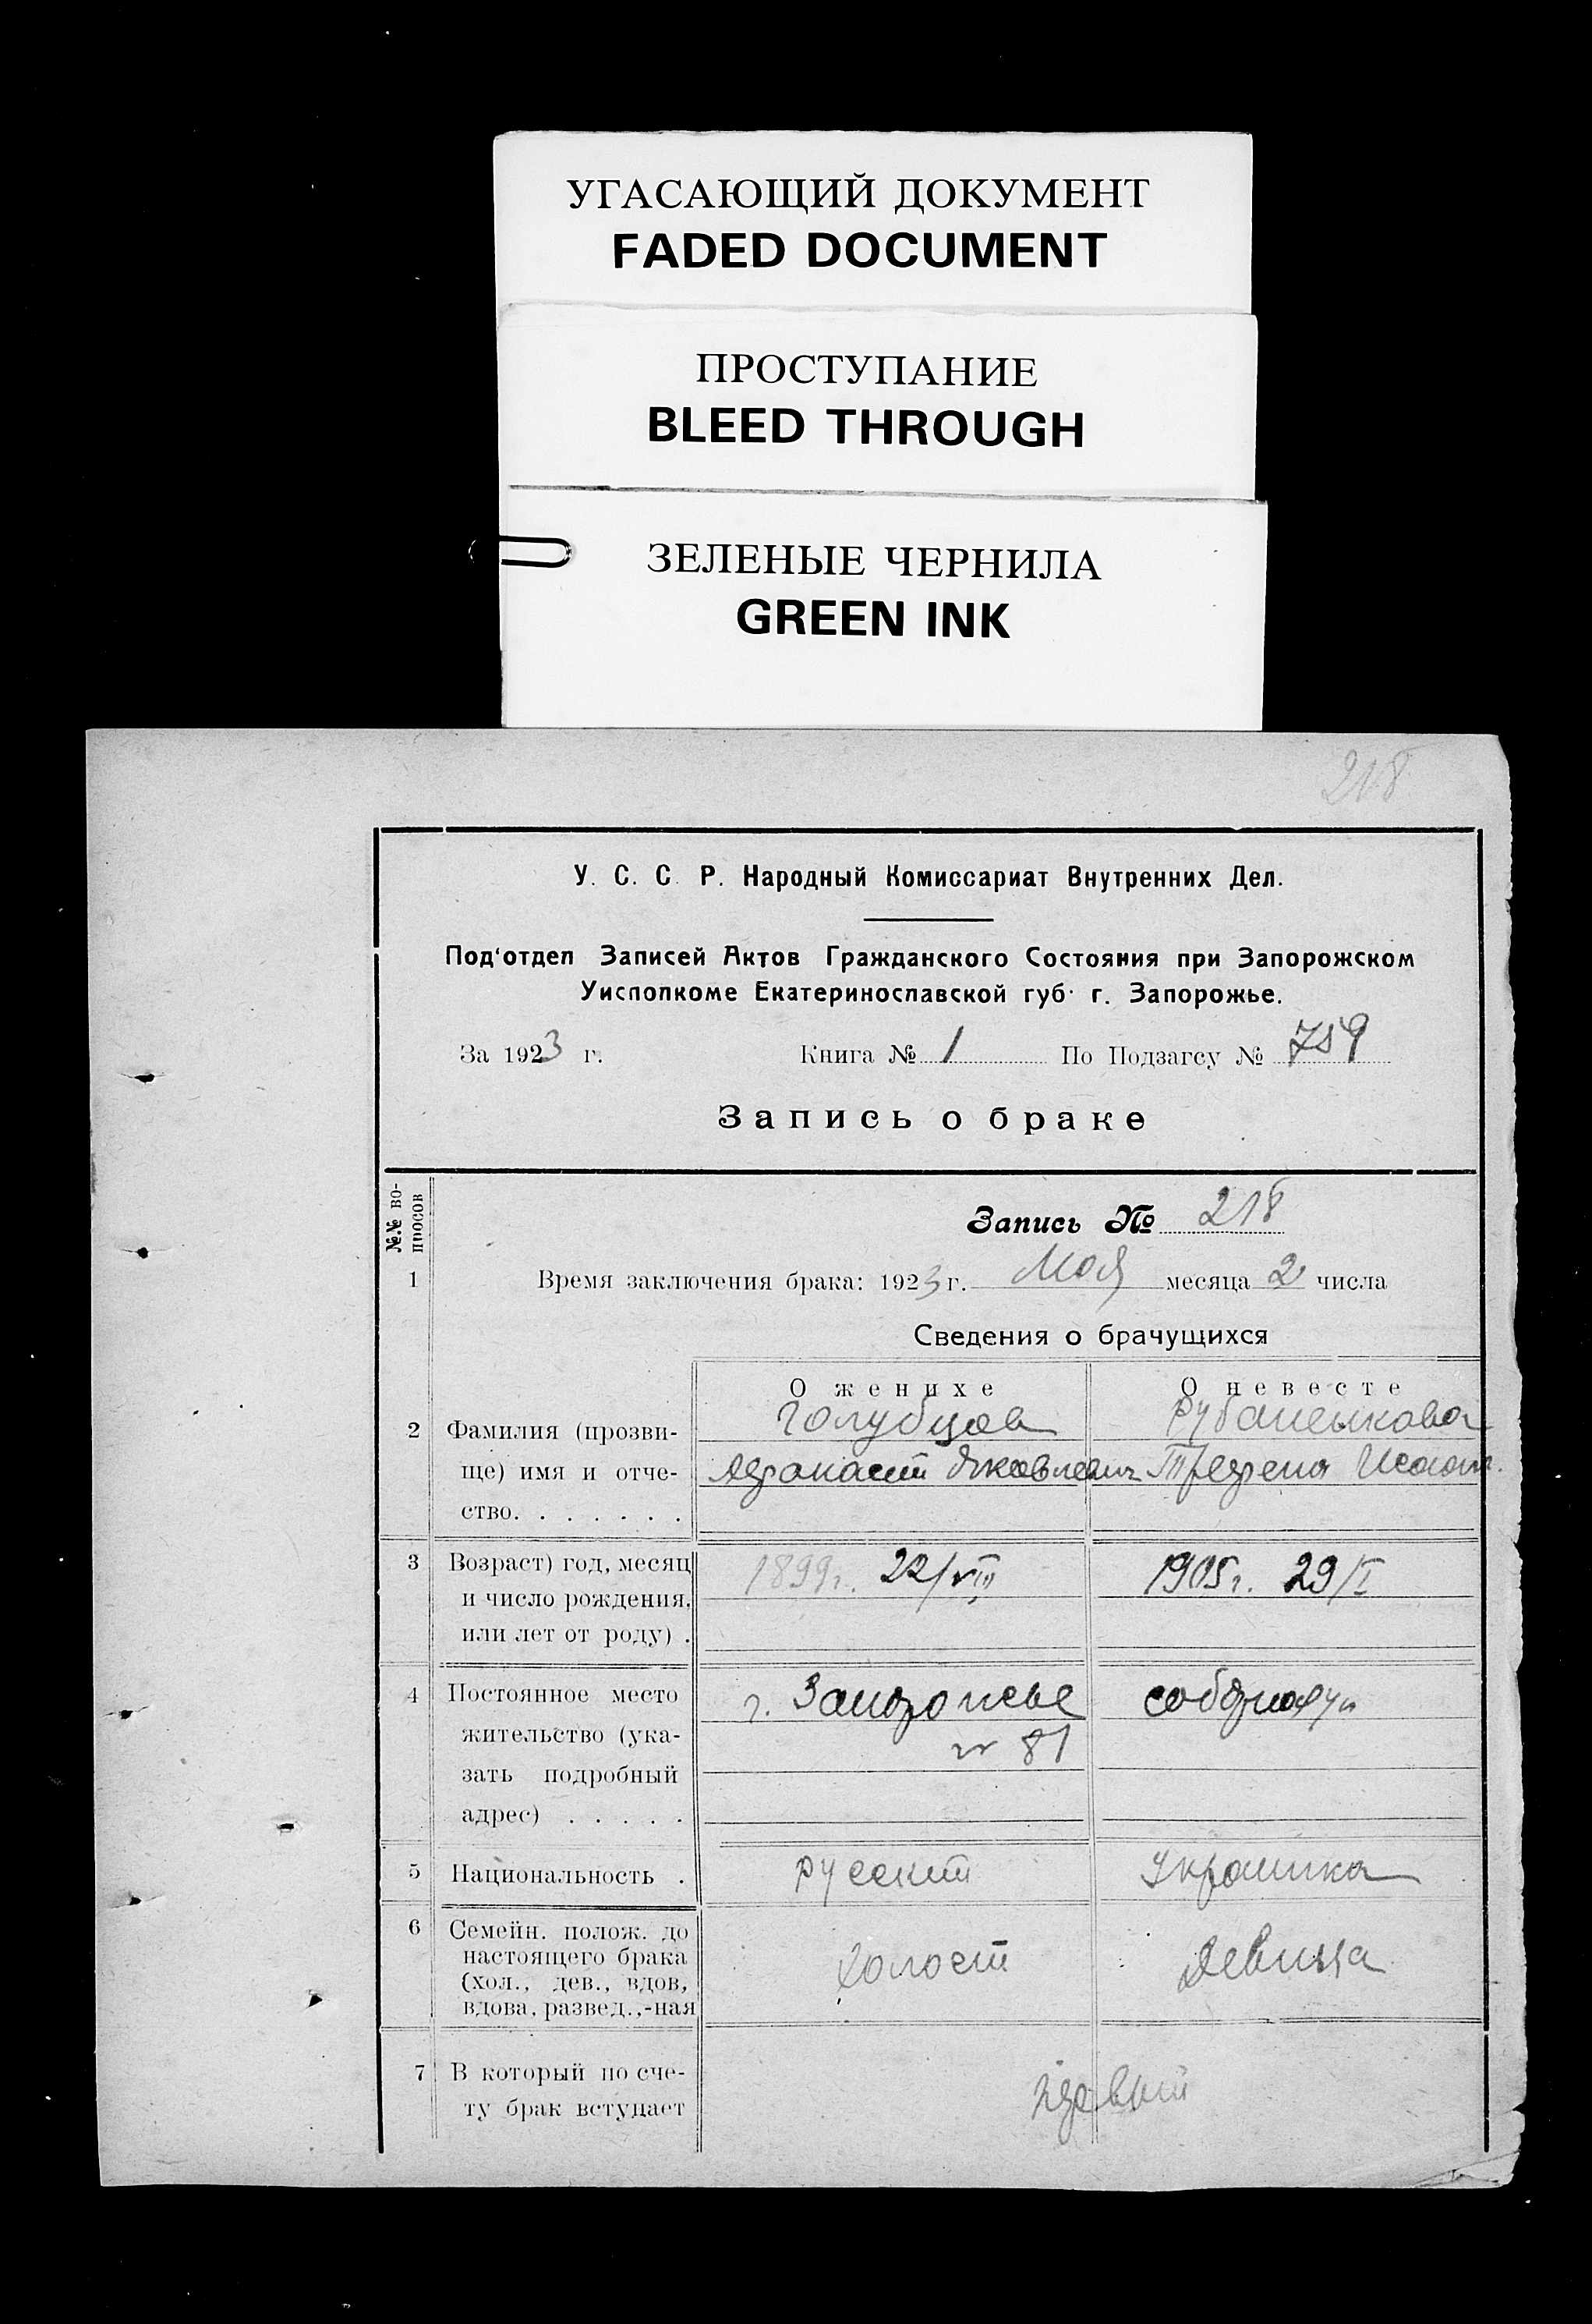 УГАСАЮЩИЙ ДОКУМЕНТ
FADED DOCUMENT
ПРОСТУПАНИЕ
BLEED THROUGH
ЗЕЛЕНЫЕ ЧЕРНИЛА
GREEN INK
218
У. С. С. Р. Народный Комиссариат Внутренних Дел.
Под'отдел Записей Актов Гражданского Состояния при Запорожском
Уисполкоме Екатеринославской губ. г. Запорожье.
За 1923 г. Книга № 1 По Подзагсу № 759
Запись о браке
№№ во-
просов
Запись № 218
1 Время заключения брака: 1923 г. Мая месяца 2 числа
Сведения о брачущихся
О женихе О невесте
Голубцов
2 Фамилия (прозви-
ще) имя и отче- Афанасий Яковлевич
ство. . . . . . .
3 Возраст) год, месяц 1899г. 22/VIII 1905г. 29/I
и число рождения,
или лет от роду) .
4 Постоянное место г. Запорожье
жительство (ука- 81
зать подробный
адрес) . . . . .
5 Национальность . русский Украинка
6 Семейн. полож. до
настоящего брака холост девица
(хол., дев., вдов,
вдова, развед.,-ная
7 В который по сче- первый
ту брак вступает